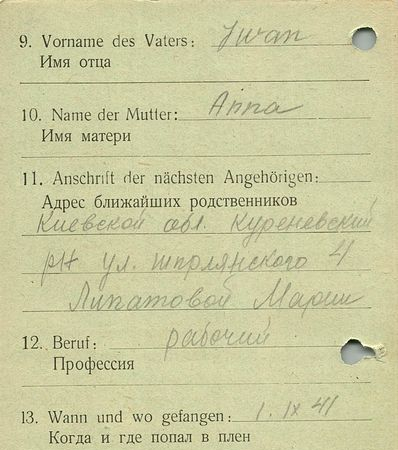 9. Vorname des Vaters: Iwan
Имя отца
10. Name der Mutter: Anna
Имя матери
11. Anschrift der nächsten Angehörigen:
Адрес ближайших родственников
Киевской обл. Куреневский
рн ул. шполянского 4
Липатовой Марии
12. Beruf: рабочий
Профессия
13. Wann und wo gefangen: 1. IX 41
Когда и где попал в плен